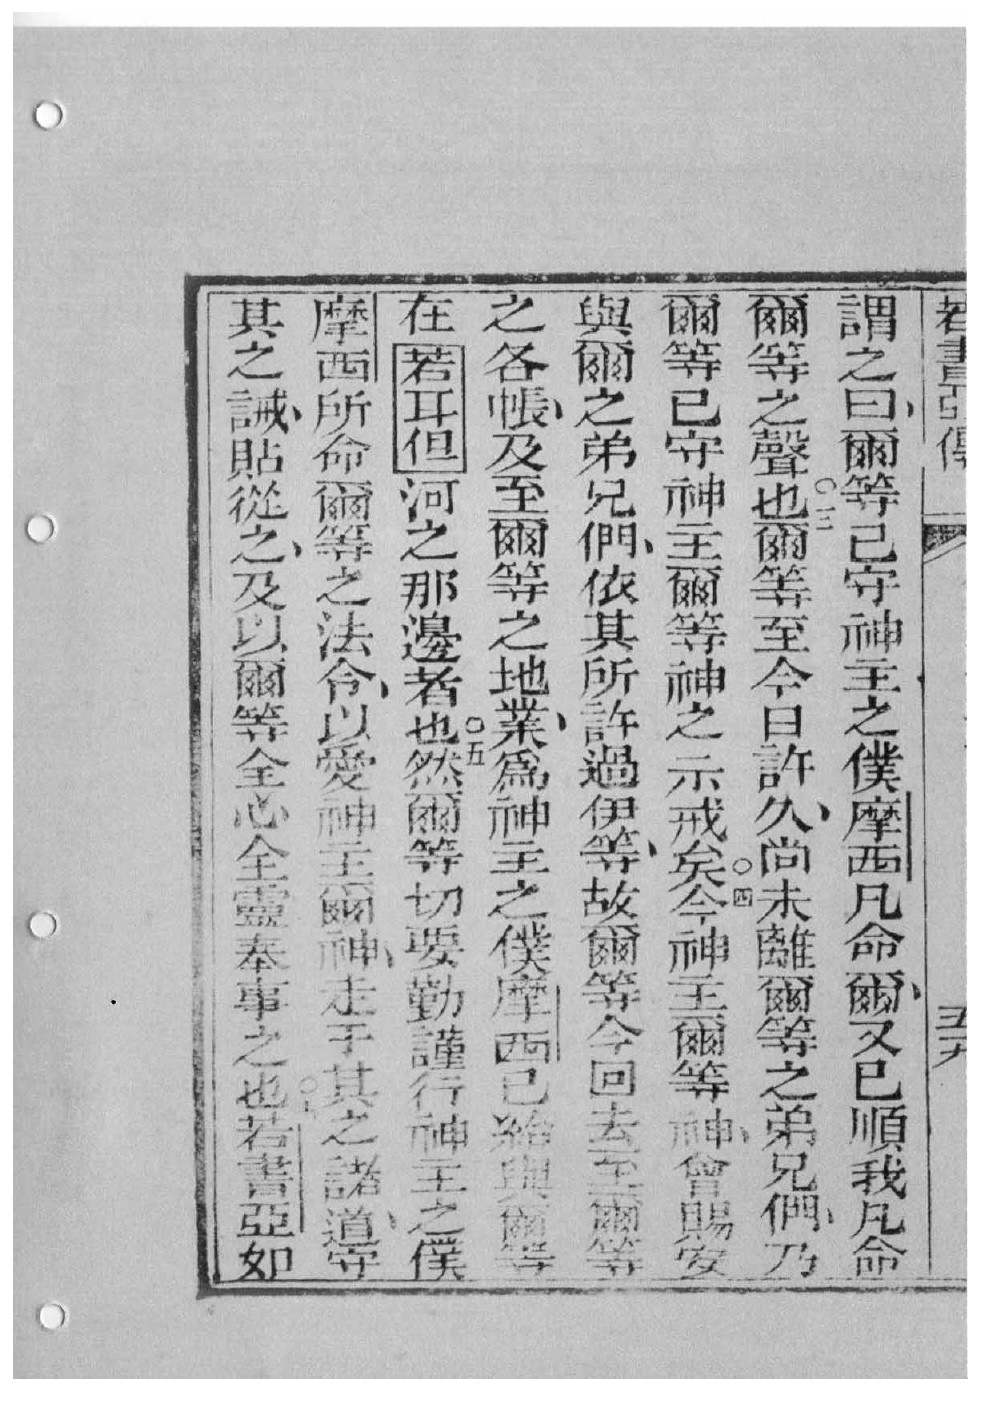 若書亞傳 五九
謂之曰、爾等已守神主之僕摩西凡命爾、又已順我凡命
爾等之聲也○三爾等至今日許久、尚未離爾等之弟兄們、乃
爾等已守神主爾等神之示戒矣○四今神主爾等神、會賜安
與爾之弟兄們、依其所許過伊等、故爾等今回去至爾等
之各帳、及至爾等之地業、為神主之僕摩西已給與爾等
在若耳但河之那邊者也○五然爾等切要勤謹行神主之僕
摩西所命爾等之法令、以愛神主爾神、走于其之諸道、守
其之誡、貼從之、及以爾等全心全靈奉事之也○六若書亞如